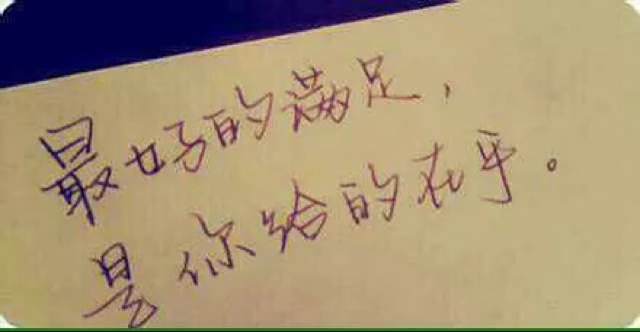 最好的满足，
是你给的在乎。